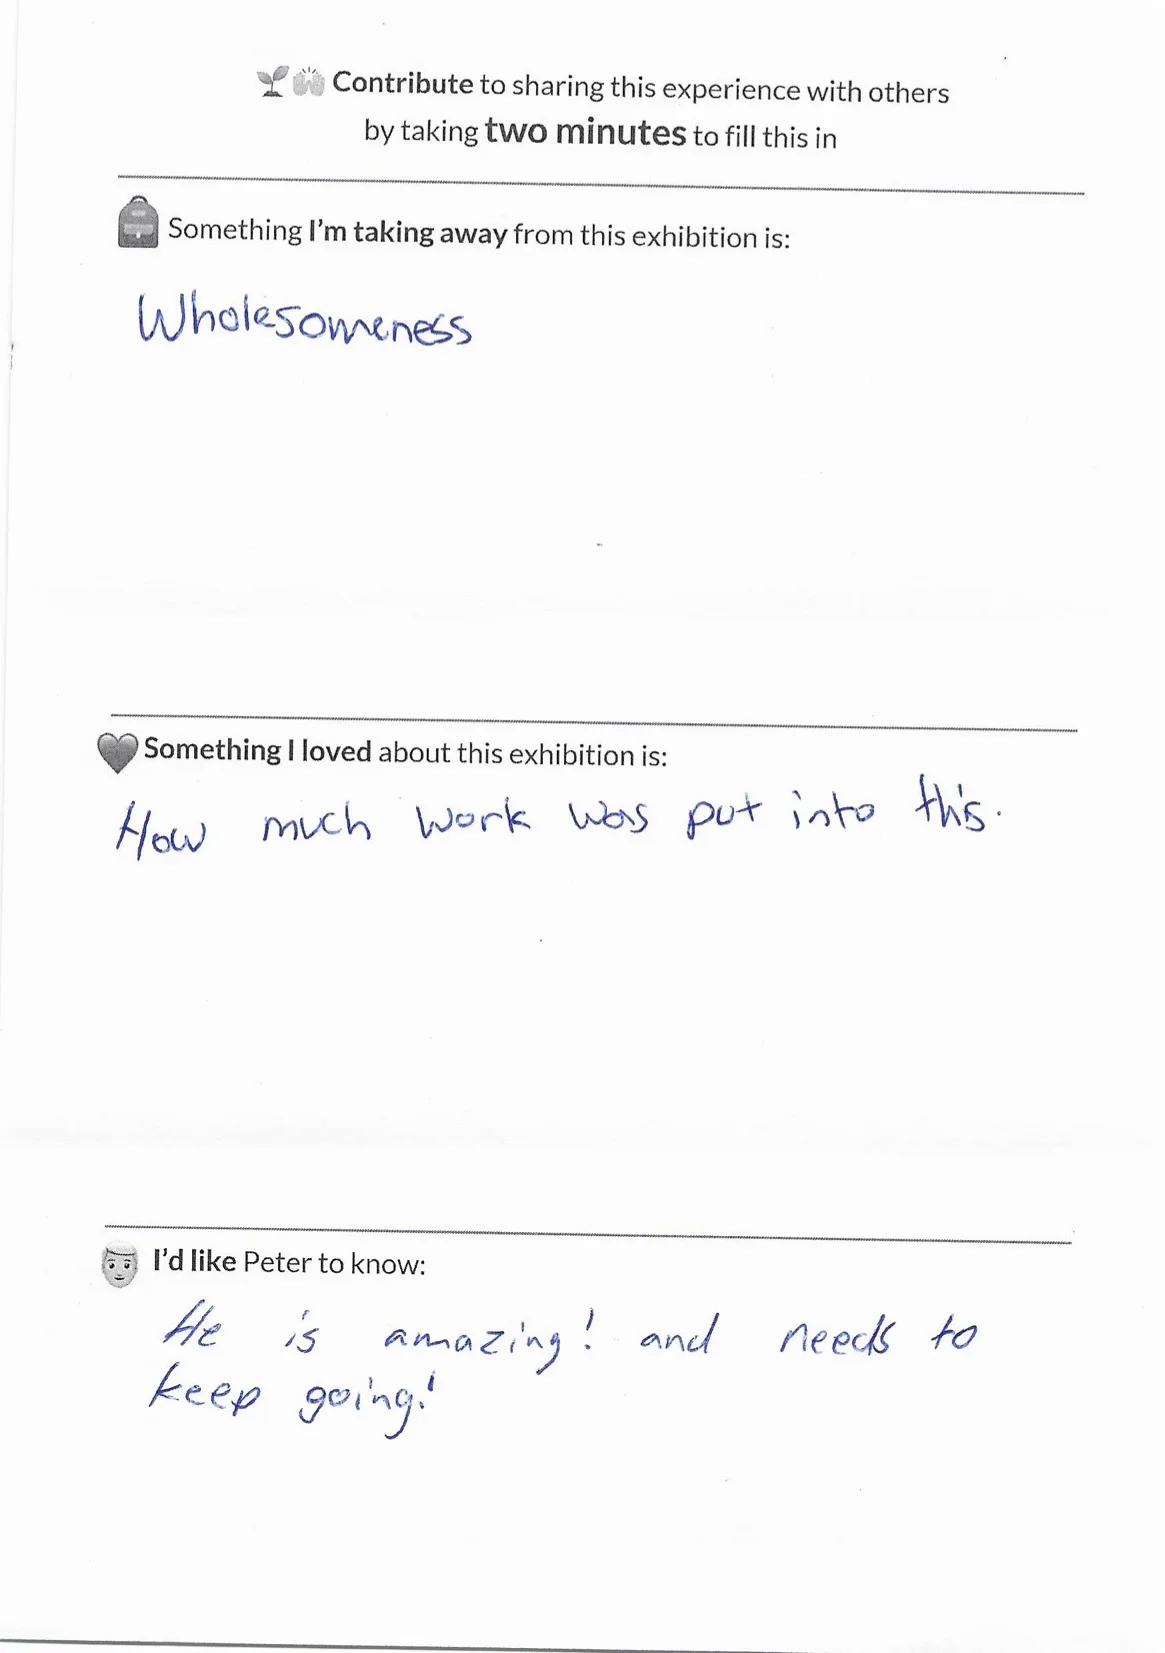 Contribute to sharing this experience with others
by taking two minutes to fill this in
Something I'm taking away from this exhibition is:
Wholesomeness
Something I loved about this exhibition is:
How much work was put into this.
I'd like Peter to know:
He is amazing! and needs to
keep going!